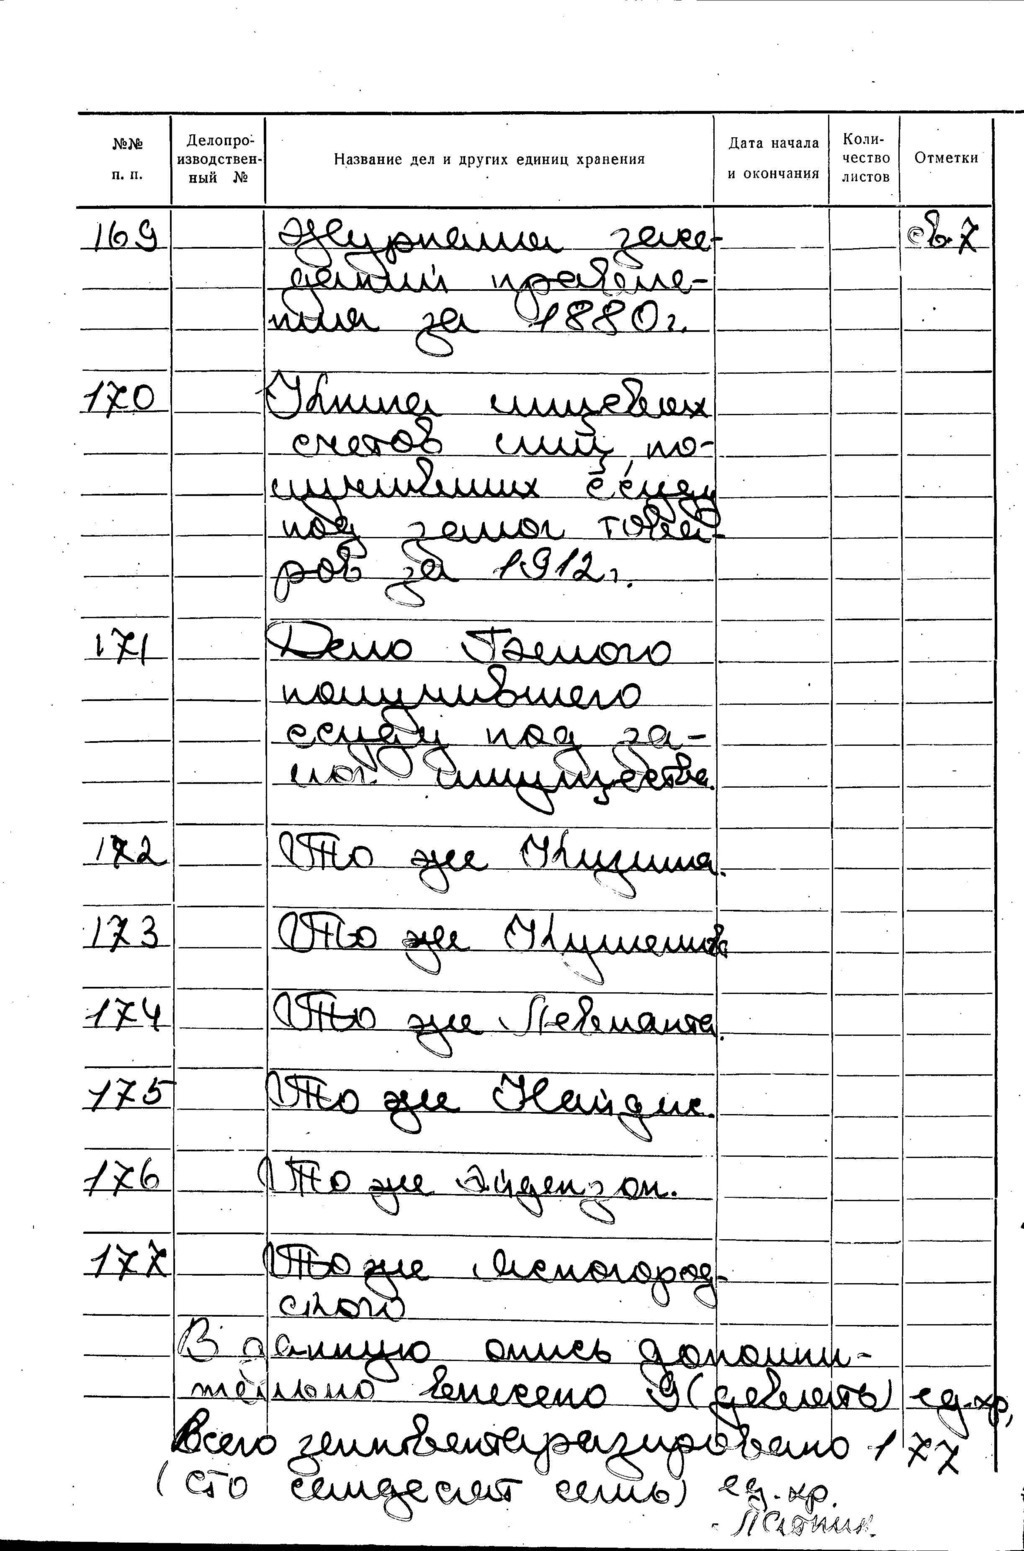 №№ п. п.
Делопро-
изводствен-
ный №
Название дел и других единиц хранения
Дата начала
и окончания
Коли-
чество
листов
Отметки
169 Журналы засе- св. 7
даний правле-
ния за 1880 г.
170 Книга лицевых
счетов лиц, по-
лучивших ссуду
под залог това-
ров за 1912 г.
171 Дело Гэлого
получившего
ссуду под за-
лог имущества.
172 То же Кузина.
173 То же
174 То же Левманта.
175 То же Найдис.
176 То же Эйдензон.
177 То же Ясногород-
ского
В данную опись дополни-
тельно внесено 9 (девять) ед. хр.
Всего заинвентаризировано 177
(сто семьдесят семь) ед. хр.